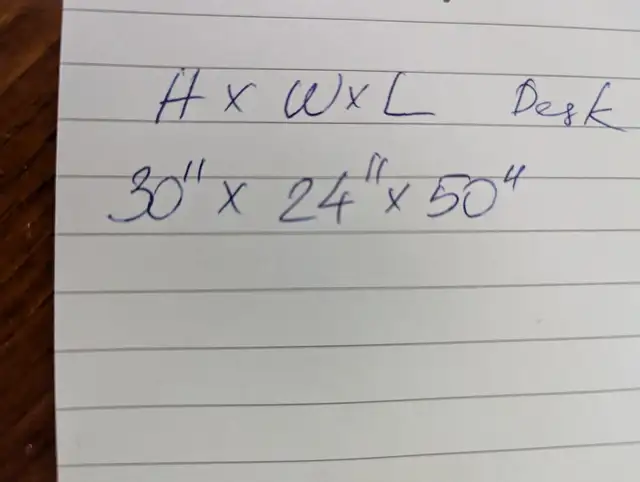 H x W x L Desk
30" x 24" x 50"